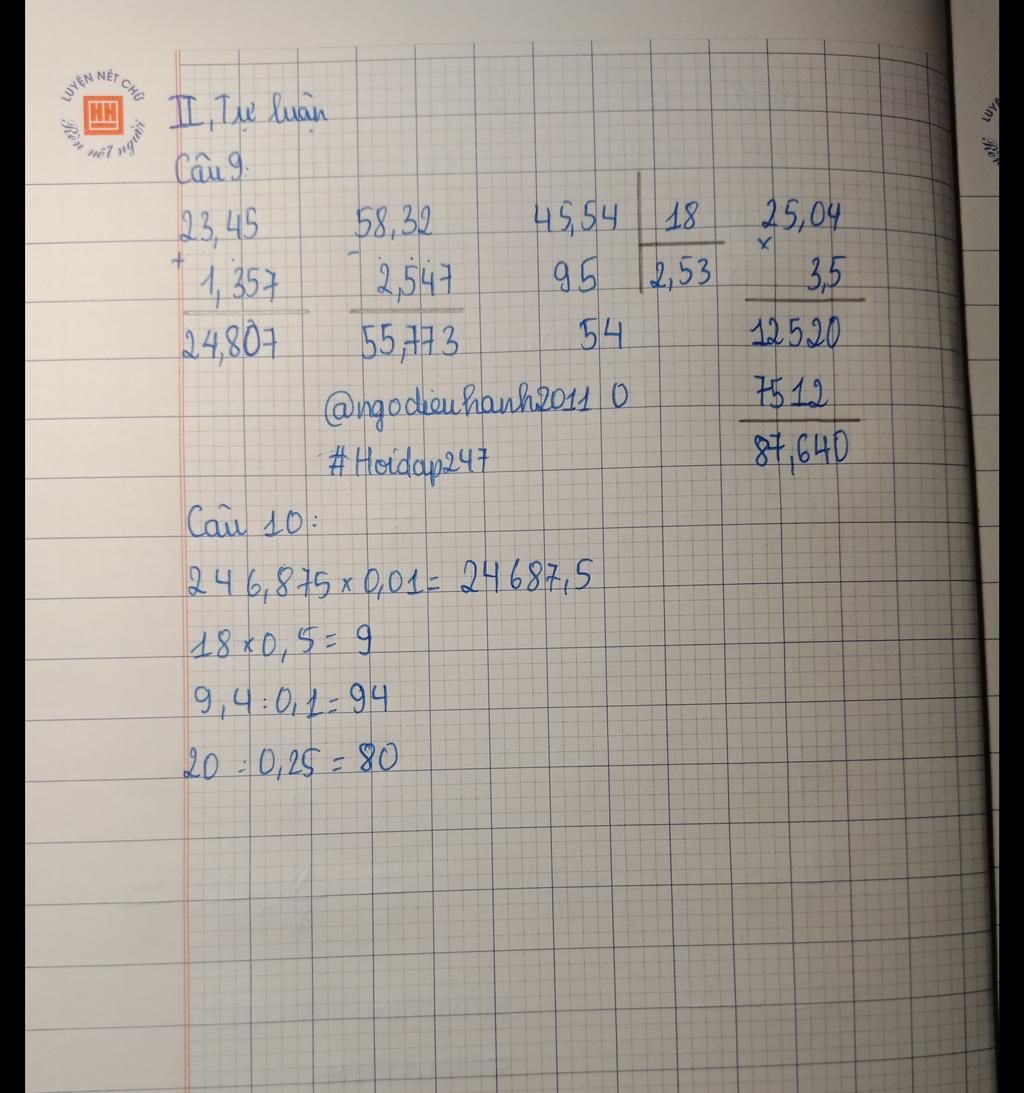 LUYỆN NÉT CHỮ
HN
Rèn nết người
II, Tự luận
Câu 9:
23,45 58,32 45,54 18 25,04
+ - ×
1,357 2,547 95 2,53 3,5
24,807 55,773 54 12520
@ngodieuhanh2011 0 7512
#Hoidap247 87,640
Câu 10:
246,875 × 0,01 = 24687,5
18 × 0,5 = 9
9,4 : 0,1 = 94
20 : 0,25 = 80